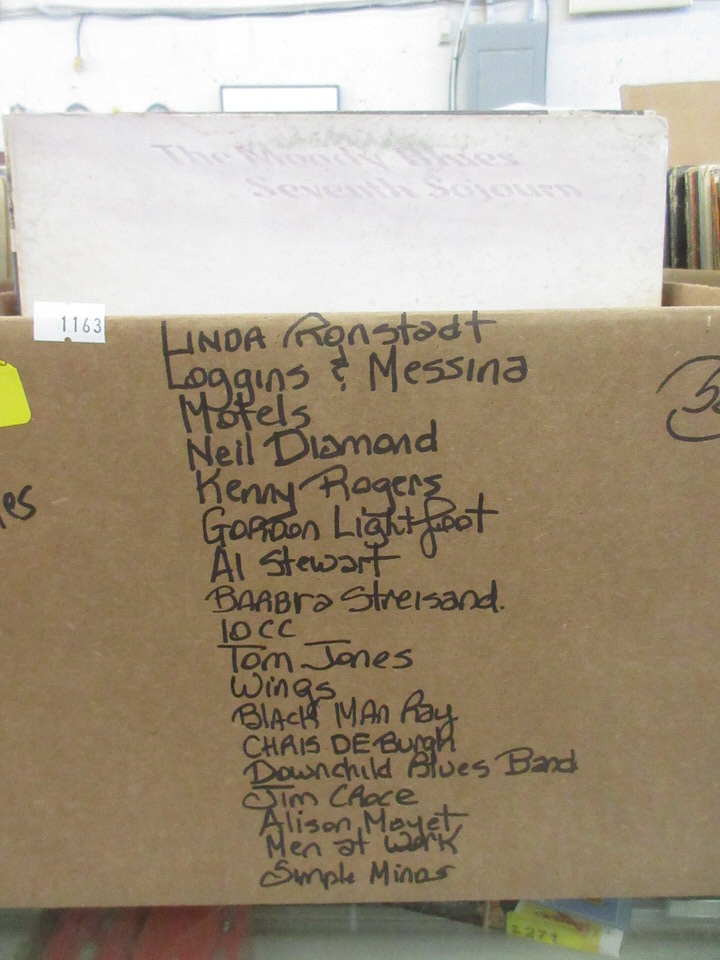 The Moody Blues
Seventh Sojourn
1163
LINDA Ronstadt
Loggins & Messina
Motels
Neil Diamond
Kenny Rogers
GORDON Lightfoot
Al Stewart
BARBra Streisand.
10cc
Tom Jones
Wings
BLACK MAn Ray
CHRIS DE Burgh
Downchild Blues Band
Jim CROCE
Alison Moyet
Men at WORK
Simple Minds
es
1271